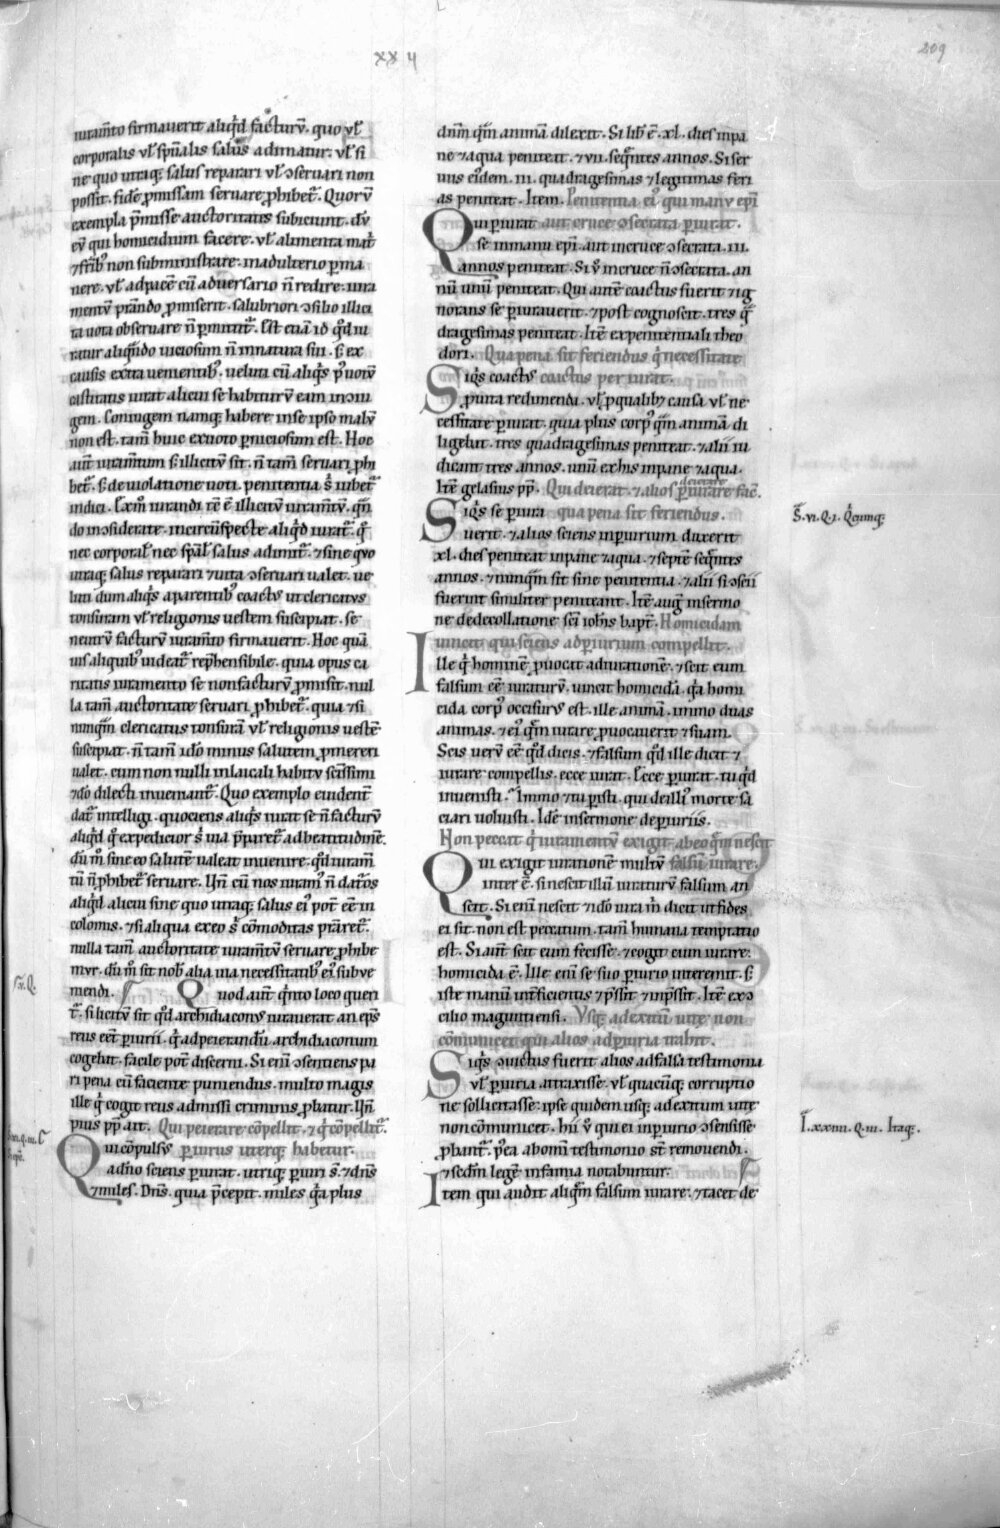 xx ii
209
iuram̅to firmauerit aliq̓d facturu̅. quo ul̅
corporalis ul̅ sp̅ualis salus adimatur. ul̅ si
ne quo utraq; salus reparari ul̅ ɔseruari non
possit. fide̅ ꝓmissam seruare ꝓhibet̅. Quoru̅
exempla p̅misse auctoritates subiciunt. du̅
eu̅ qui homicidium facere. ul̅ alimenta mat̓
⁊ fr̅ib; non subministrare. in adulterio p̲ma
nere. ul̅ ad pace̅ cu̅ aduersario n̅ redire. iura
mentu̅ p̅stando ꝓmiserit. salubriori ɔsilio illici
ta uota obseruare n̅ p̲mittit̅. Est etia̅ id q̓d iu
ratur aliqn̅do uiciosum n̅ in natura sui. s; ex
causis extra uenientib;. ueluti cu̅ aliq̓s p̲ uotu̅
castitatis iurat alicui se habituru̅ eam in ɔiu
gem. Coniugem namq; habere in se ipso malu̅
non est. tam̅ huic ex uoto p̲niciosum est. Hoc
aut̅ iuram̅tum s; illicitu̅ sit. n̅ tam̅ seruari ꝓhi
bet̅. s; de uiolatione uoti. penitentia s̓ iubet̅
indici. Ex̅m̅ iurandi re̅ e̅ illicitu̅ iuram̅tu̅. qn̅
do inɔsiderate. incircu̅specte aliq̓d iurat̅. q̓
nec corporal̓ nec sp̅al̓ salus adimit̅. ⁊ sine quo
utraq; salus reparari ⁊ uita ɔseruari ualet. ue
luti dum aliq̓s a parentib; coactus ut clericatus
tonsuram ul̅ religionis uestem suscipiat. se
neutru̅ facturu̅ iuram̅to firmauerit. Hoc qua̅
uis aliquib; uideat̅ rep̅hensibile. quia opus ca
ritatis iuramento se non facturu̅ ꝓmisit. nul
la tam̅ auctoritate seruari ꝓhibet̅. quia ⁊ si
nunq̅m clericatus tonsura̅ ul̅ religionis ueste̅
suscipiat. n̅ tam̅ id̓o minus salutem ꝓmereri
ualet. cum non nulli in laicali habitu sc̅issimi
⁊ d̅o dilecti inueniant̅. Quo exemplo euident̅
dat̅ intelligi. quociens aliq̓s iurat se n̅ facturu̅
aliq̓d q̓ expedicior s̓ uia p̅pararet̅ ad beatitudine̅.
du̅ m̅ sine eo salute̅ ualeat inuenire. q̓d iuram̅
tu̅ n̅ ꝓhibet̅ seruare. Un̅ cu̅ nos iuram̅ n̅ daturos
aliq̓d alicui sine quo utraq; salus ei; pot̅ e̅e in
colomis. ⁊ si aliqua ex eo s̓ co̅moditas p̅raret̅.
nulla tam̅ auctoritate iuram̅tu̅ seruare ꝓhibe
mur. du̅ m̅ sit nob̅ alia uia necessitatib; ei; subue
niendi. Quod aut̅ q̓nto loco queri
t̅. si licitu̅ sit q̓d archidiaconus iurauerat an ep̅s
reus e̅et p̲iurii. q̓ ad peierandu̅ archidiaconum
cogebat. facile pot̅ discerni. Si eni̅ ɔsentiens pa
ri pena cu̅ faciente puniendus. multo magis
ille q̓ cogit reus admissi criminis ꝓbatur. Un̅
pius pp̅ ait. Qui peierare co̅pellit. ⁊ q̓ co̅pellit̅.
Qui co̅pulsus p̲iurus uterq; habetur.
a d̅no sciens p̲iurat. utriq; p̲iuri s̅. ⁊ dn̅s
⁊ miles. Dn̅s. quia p̅cepit. miles q̓a plus
dn̅m q̅m anima̅ dilexit. Si lib̅ e̅. xl. dies in pa
ne ⁊ aqua peniteat. ⁊ vii. seq̅ntes annos. Si ser
uus eidem. iii. quadragesimas ⁊ legitimas feri
as peniteat. Item. Penitentia ei; qui in manu ep̅i
Qui p̲iurat aut cruce ɔsecrata p̲iurat.
se in manu ep̅i. aut in cruce ɔsecrata. iii.
annos peniteat. Si u̓ in cruce n̅ ɔsecrata. an
nu̅ unu̅ peniteat. Qui aute̅ coactus fuerit ⁊ ig
norans se p̲iurauerit. ⁊ post cognoscit. tres q̅
dragesimas peniteat. Ite̅ ex penitentiali theo
dori. Qua pena sit feriendus q̓ necessitate
Siq̓s coactus coactus periurat.
ꝓ uita redimenda. ul̅ ꝓ qualib; causa ul̅ ne
cessitate p̲iurat. quia plus corp; q̅m anima̅ di
ligebat. tres quadragesimas peniteat. ⁊ alii iu
dicant tres annos. unu̅ ex his in pane ⁊ aqua.
Ite̅ gelasius pp̅. Qui deierat. ⁊ alios p̲iurare fac̅.
deierare
Siq̓s se p̲iura qua pena sit feriendus.
uerit. ⁊ alios sciens in p̲iurium duxerit
xl. dies peniteat in pane ⁊ aqua. ⁊ septe̅ seq̅ntes
annos. ⁊ nunq̅m sit sine penitentia. ⁊ alii si ɔscii
fuerint similiter peniteant. Ite̅ aug̅ in sermo
ne de decollatione sc̅i ioh̅is bapt̅. Homicidam
uincit qui sciens ad p̲iurium compellit.
Ille q̓ homine̅ ꝓuocat ad iuratione̅. ⁊ scit eum
falsum e̅e iuraturu̅. uincit homicida̅. q̓a homi
cida corp; occisurus est. ille anima̅. immo duas
animas. ⁊ ei; q̅m iurare ꝓuocauerit ⁊ suam.
Scis ueru̅ e̅e q̓d dicis. ⁊ falsum q̓d ille dicit ⁊
iurare compellis. ecce iurat. Ecce p̲iurat. tu q̓d
inuenisti. Immo ⁊ tu p̲isti. qui de illi; morte sa
ciari uoluisti. Ide̅ in sermone de p̲iuriis.
Non peccat q̓ iuramentu̅ exigit ab eo q̅m nescit
Qui exigit iurationem multu̅ falsu̅ iurare.
inter e̅. si nescit illu̅ iuraturu̅ falsum an
scit. Si eni̅ nescit ⁊ id̅o iura m̓ dicit ut fides
ei sit. non est peccatum. tam̅ humana temptatio
est. Si aut̅ scit eum fecisse. ⁊ cogit eum iurare.
homicida e̅. Ille eni̅ se suo p̲iurio interemit. s;
iste manu̅ int̅ficientis ⁊ p̅ssit ⁊ inp̅ssit. Ite̅ ex ɔ
cilio maguntiensi. Usq; ad exitu̅ uite non
co̅municet qui alios ad p̲iuria trahit.
Siq̓s ɔuictus fuerit alios ad falsa testimonia
ul̅ p̲iuria attraxisse. ul̅ quacu̅q; corruptio
ne sollicitasse. ipse quidem usq; ad exitum uite
non co̅municet. hii u̓ qui ei in p̲iurio ɔsensisse
ꝓbant̅. p̲ ea ab omi̅ testimonio st̅ remouendi.
⁊ sed̅m lege̅ infamia notabuntur.
Item qui audit aliq̅m falsum iurare. ⁊ tacet de
S̅. vi. Q. i. Q̓cumq;
I. xxiiii. Q. iii. Itaq;.